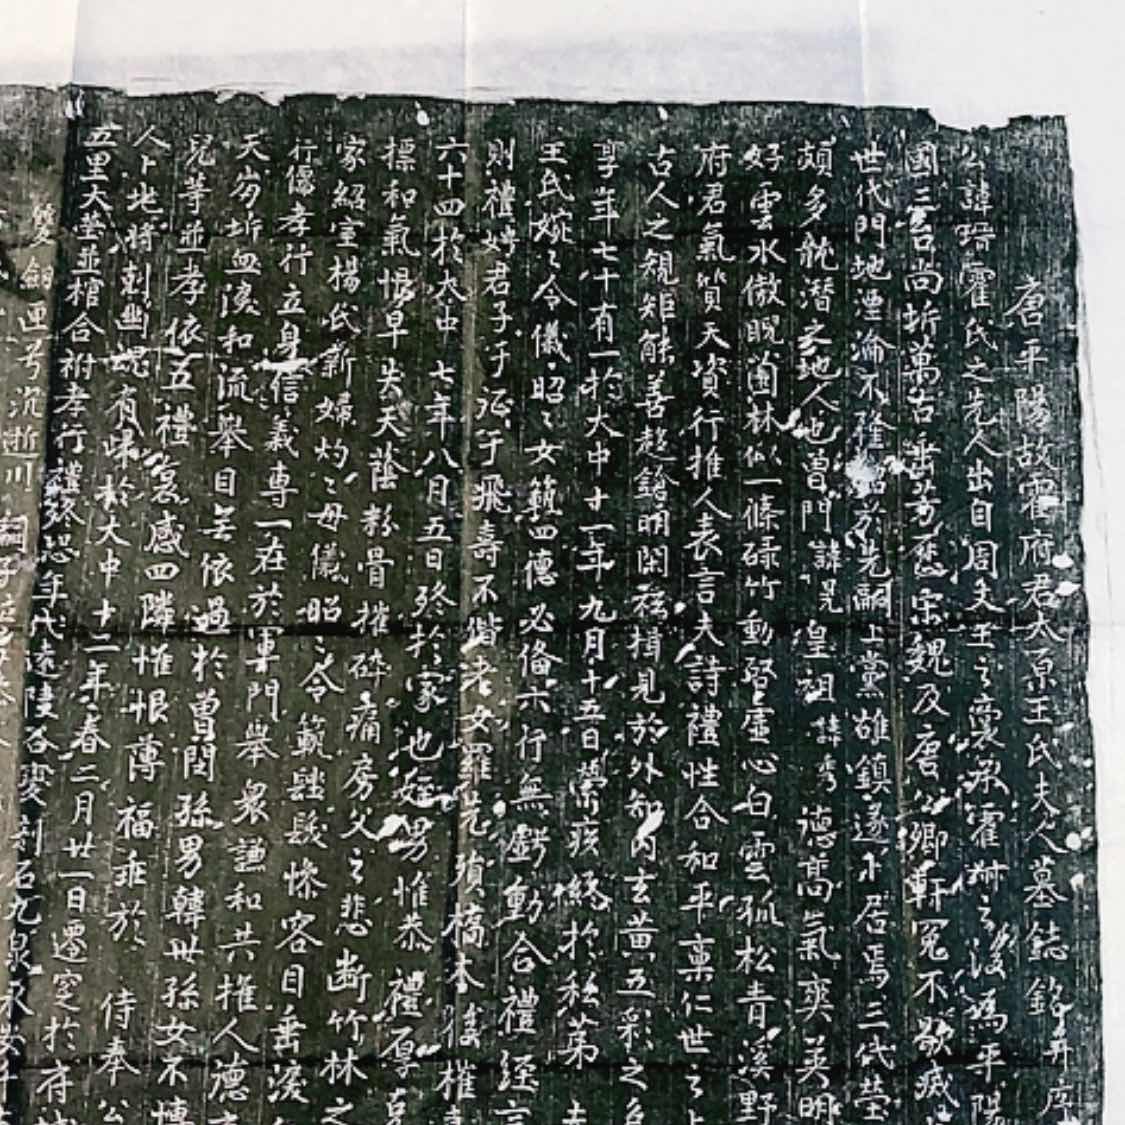 唐平陽故霍府君太原王氏夫人墓誌銘并序
公諱瑨霍氏之先人出自周文王之裔承霍州之後為平陽
國三台尚坼萬古垂芳歷宋魏及唐公卿軒冕不歇滅
世代門地湮淪不雜紹於先嗣上黨雄鎮遂尒居焉三代塋
頗多龍潛之地人也曾門諱晃皇祖諱秀德高氣爽英明
好雲水傲睨園林似一條碌竹動發虛心白雲孤松青溪野
府君氣質天資行推人表言夫詩禮性合和平稟仁世之上
古人之規矩能善趍鎗明閑禮揖見於外知內玄黃五彩之色
享年七十有一於大中十一年九月十五日縈疾終於私第 夫
王氏婉々令儀昭々女範四德必俻六行無虧動合禮經言
則禮娉君子于征于飛壽不偕老女羅先殞橋木後摧
六十四於大中七年八月五日終於家也姪男惟恭禮厚
標和氣恨早失天蔭粉骨摧碎痛房父之悲断竹林之
家紹室楊氏新婦灼々母儀昭々令範髽髮慘容目垂淚
行儒孝行立身信義專一在於軍門舉衆謙和共推人德
天崩坼血淚和流舉目無依過於曾閔孫男韓卅孫女不
兒等並孝依五禮哀感四隣惟恨薄福乖於 侍奉 公
人卜地將剋幽魂有歸於大中十二年春二月廿一日遷窆於府城
五里大塋並棺合祔孝行禮終恐年代遠陵谷變刻石九泉永安
雙劍匣兮沉逝川 嗣子